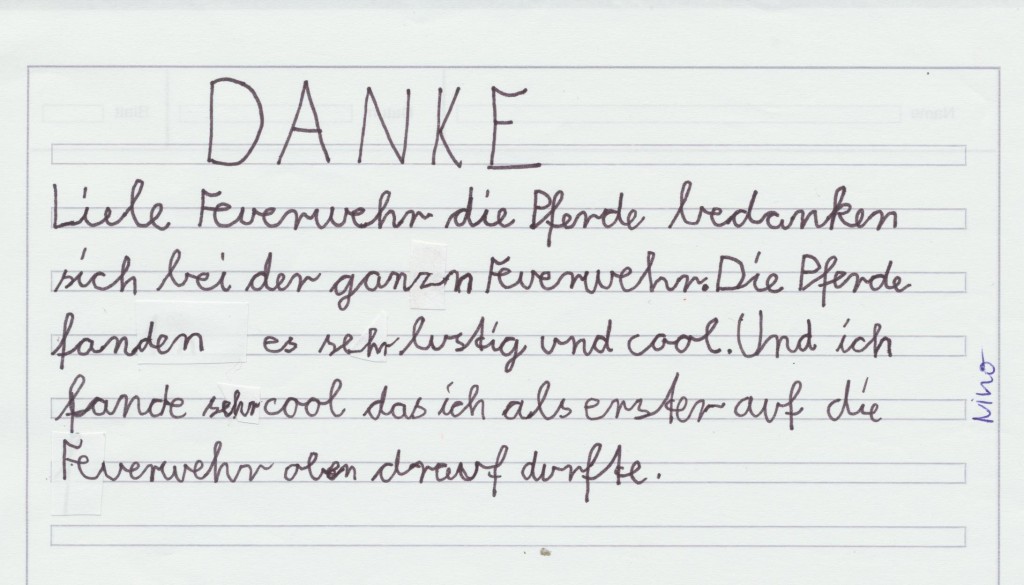 DANKE
Liebe Feuerwehr die Pferde bedanken
sich bei der ganzn Feuerwehr. Die Pferde
fanden es sehr lustig und cool. Und ich
fande sehr cool das ich als erster auf die
Feuerwehr oben drauf durfte.
Nino